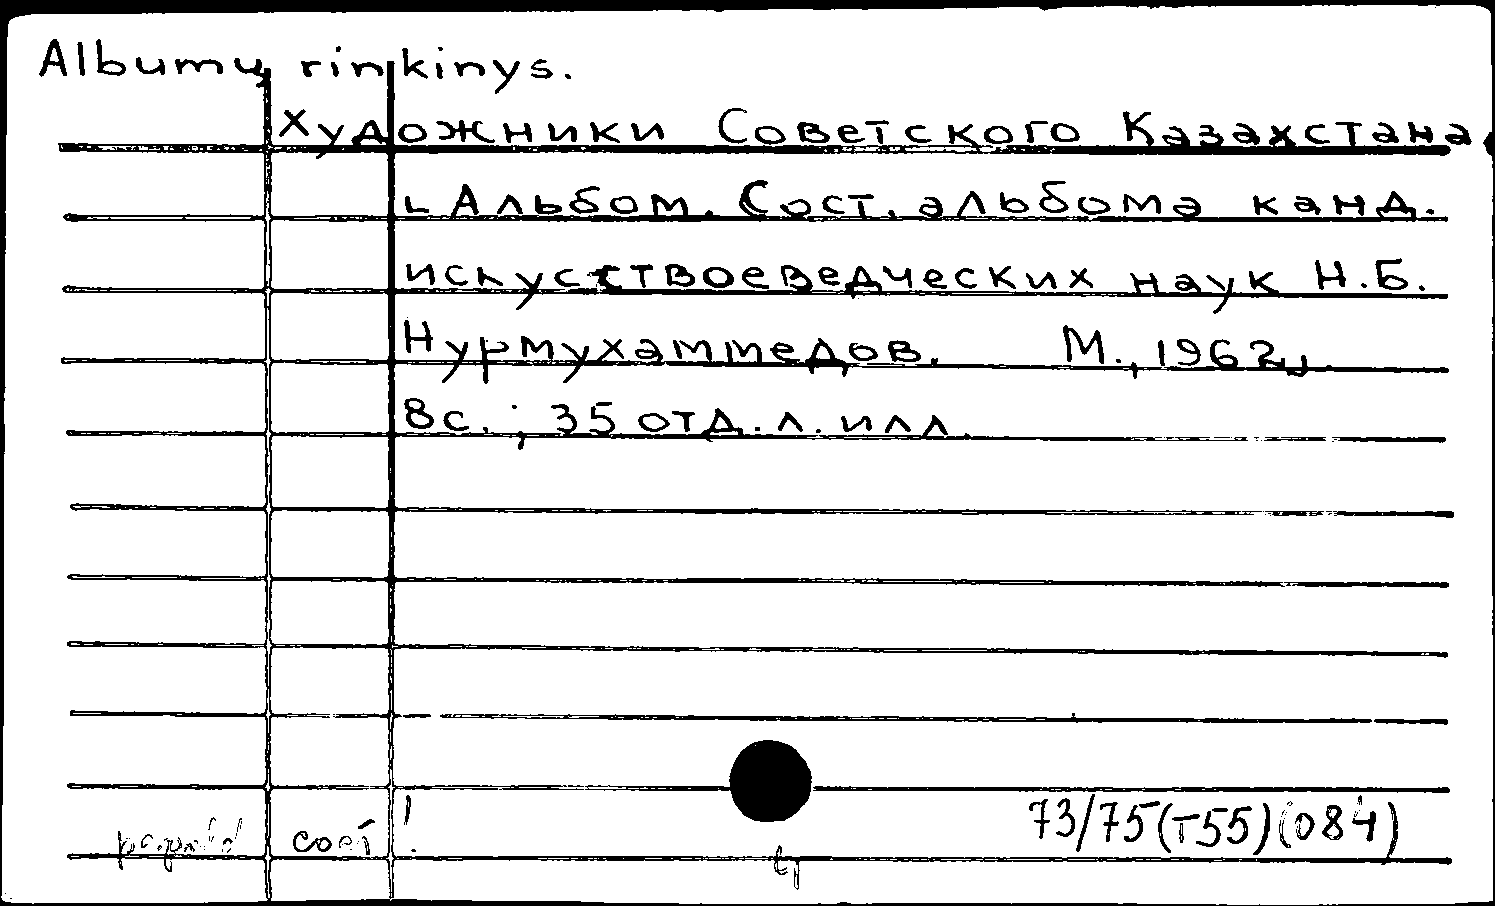 Albumų rinkinys.
Художники Советского Казахстана.
Альбом. Сост. альбома канд.
искусствоеведческих наук Н.Б.
Нурмухаммедов. М., 1962,
8с. ; 35 отд. л. илл.
73/75(T55)(084)